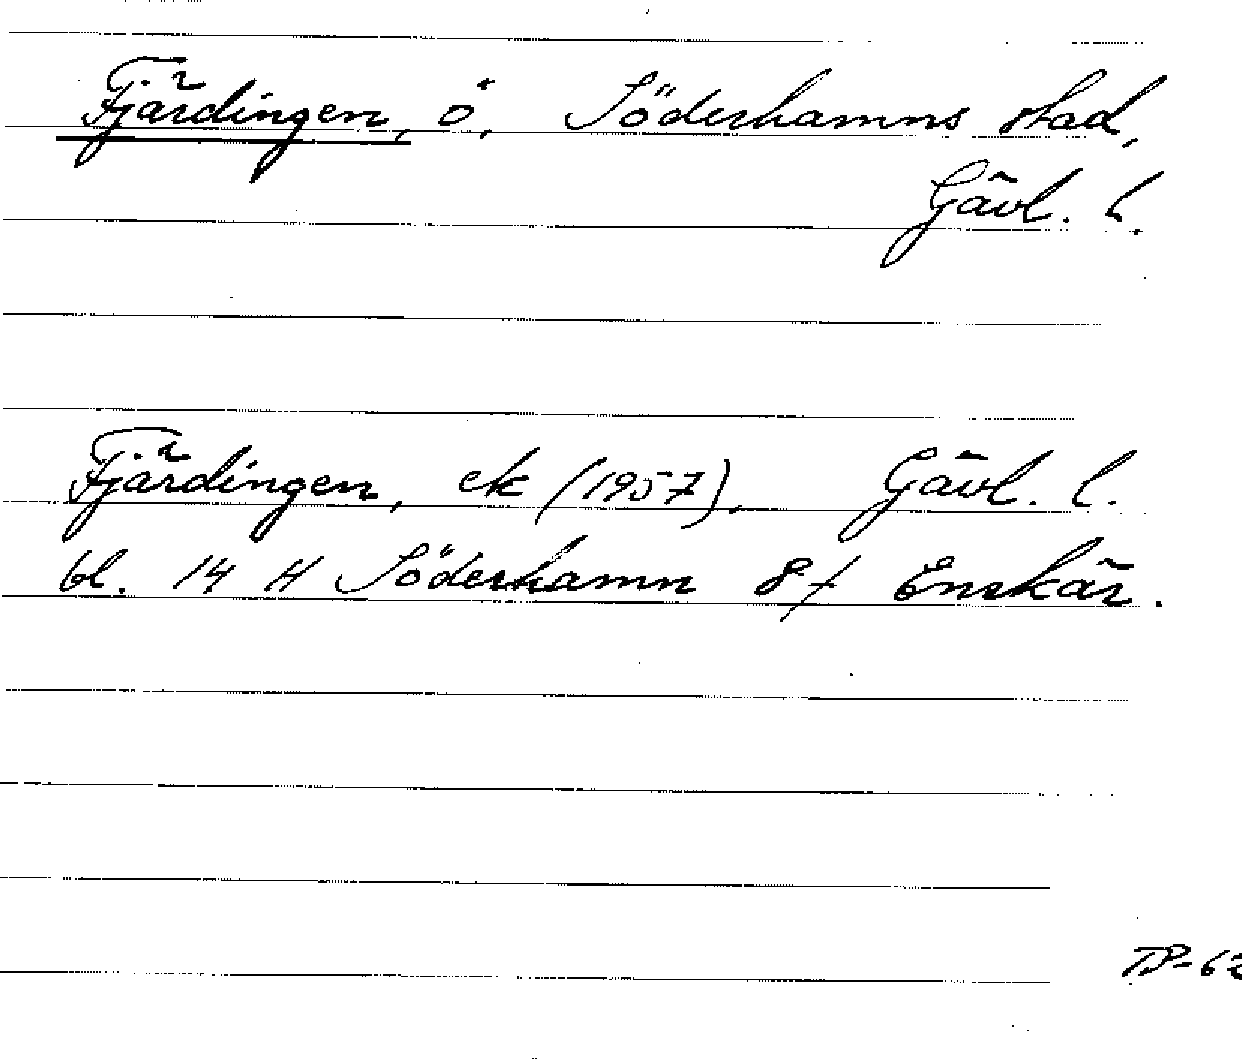 Fjärdingen, ö, Söderhamns stad,
Gävl. l.
Fjärdingen, ek (1957), Gävl. l.
bl. 14 H Söderhamn 8f Enskär.
TP-62